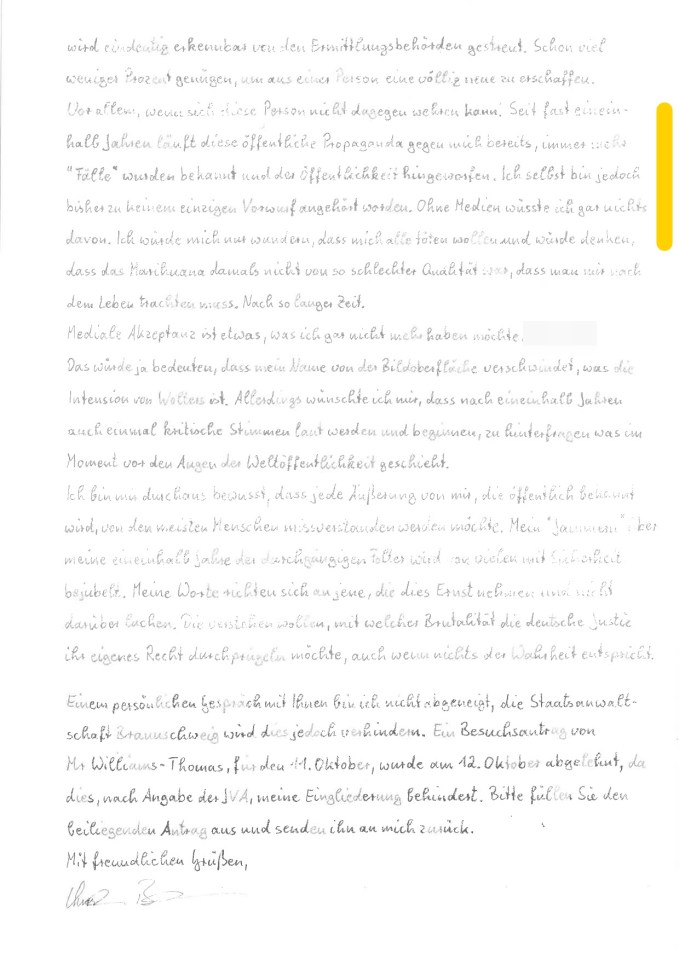 wird eindeutig erkennbar von den Ermittlungsbehörden gestreut. Schon viel
weniger Prozent genügen, um aus einer Person eine völlig neue zu erschaffen.
Vor allem, wenn sich diese Person nicht dagegen wehren kann! Seit fast einein-
halb Jahren läuft diese öffentliche Propaganda gegen mich bereits, immer mehr
"Fälle" wurden bekannt und der Öffentlichkeit hingeworfen. Ich selbst bin jedoch
bisher zu keinem einzigen Vorwurf angehört worden. Ohne Medien wüsste ich gar nichts
davon. Ich würde mich nur wundern, dass mich alle töten wollen und würde denken,
dass das Marihuana damals nicht von so schlechter Qualität war, dass man mir nach
dem Leben trachten muss. Nach so langer Zeit.
Mediale Akzeptanz ist etwas, was ich gar nicht mehr haben möchte.
Das würde ja bedeuten, dass mein Name von der Bildoberfläche verschwindet, was die
Intension von Wolters ist. Allerdings wünschte ich mir, dass nach eineinhalb Jahren
auch einmal kritische Stimmen laut werden und beginnen, zu hinterfragen was im
Moment vor den Augen der Weltöffentlichkeit geschieht.
Ich bin mir durchaus bewusst, dass jede Äußerung von mir, die öffentlich bekannt
wird, von den meisten Menschen missverstanden werden möchte. Mein "Jammern" über
meine eineinhalb Jahre der durchgängigen Folter wird von vielen mit Sicherheit
bejubelt. Meine Worte richten sich an jene, die dies Ernst nehmen und nicht
darüber lachen. Die verstehen wollen, mit welcher Brutalität die deutsche Justiz
ihr eigenes Recht durchprügeln möchte, auch wenn nichts der Wahrheit entspricht.
Einem persönlichen Gespräch mit Ihnen bin ich nicht abgeneigt, die Staatsanwalt-
schaft Braunschweig wird dies jedoch verhindern. Ein Besuchsantrag von
Mr Williams-Thomas, für den 11. Oktober, wurde am 12. Oktober abgelehnt, da
dies, nach Angabe der JVA, meine Eingliederung behindert. Bitte füllen Sie den
beiliegenden Antrag aus und senden ihn an mich zurück.
Mit freundlichen Grüßen,